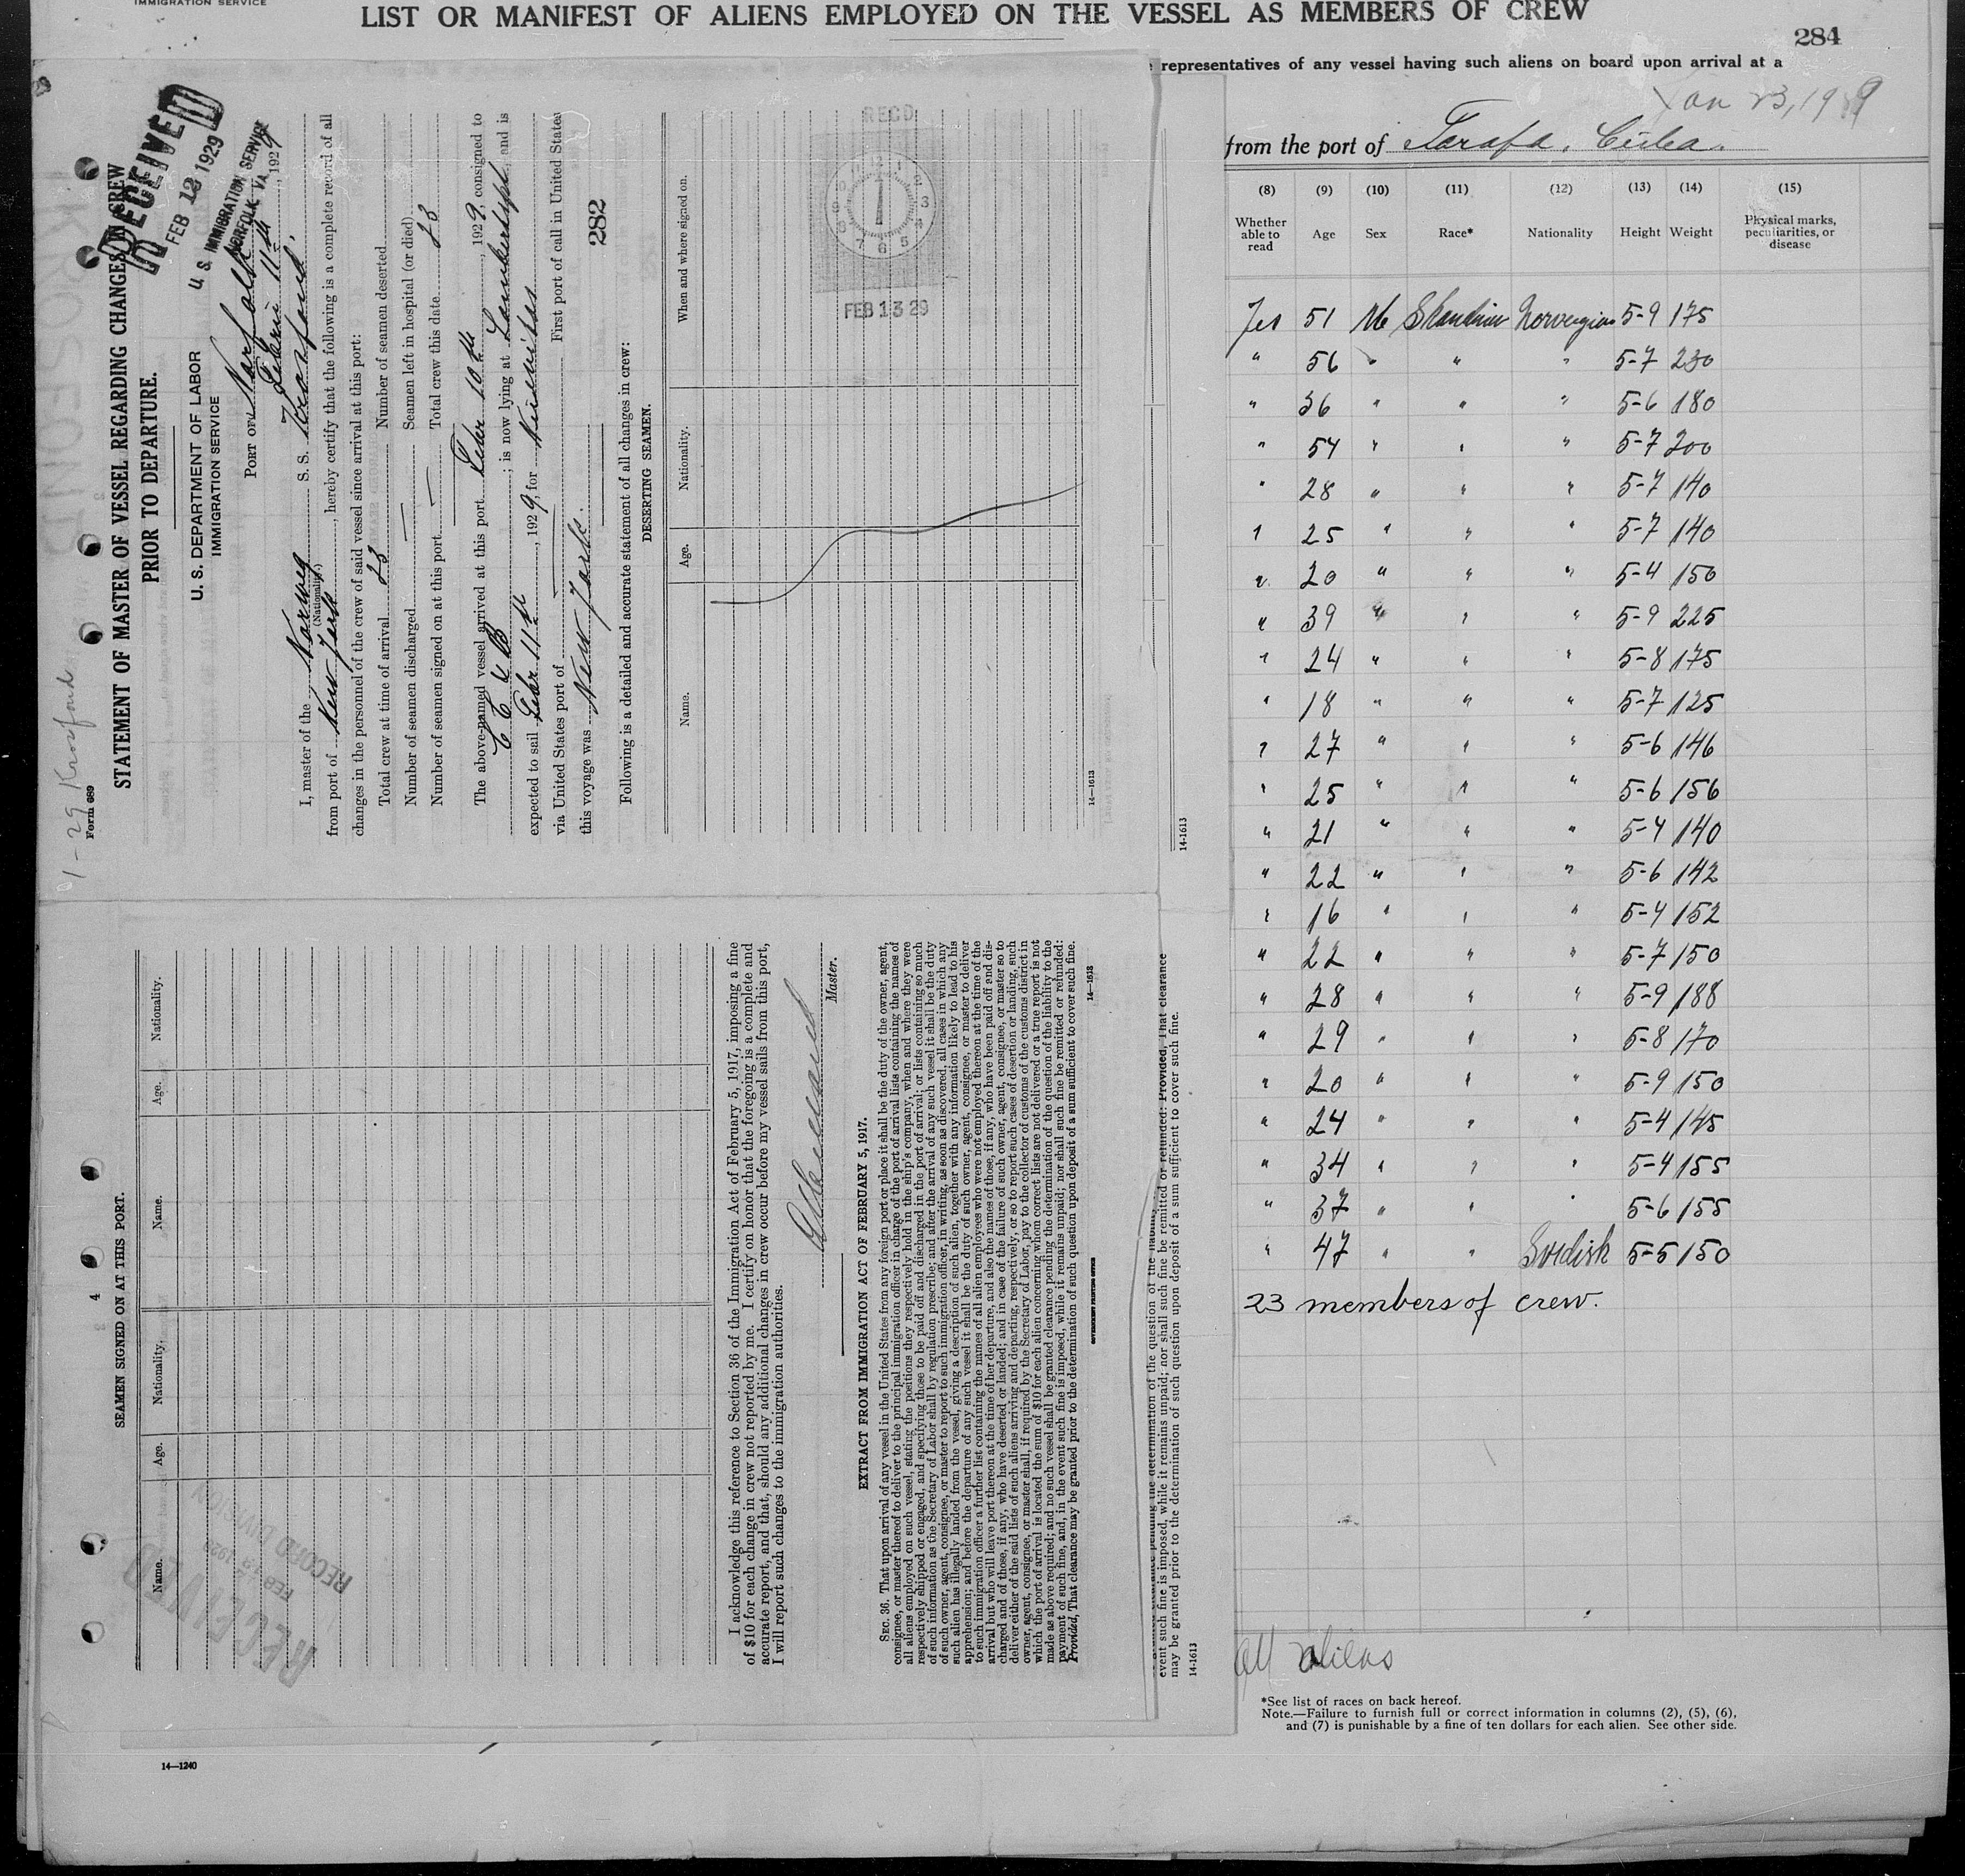 IMMIGRATION SERVICE
LIST OR MANIFEST OF ALIENS EMPLOYED ON THE VESSEL AS MEMBERS OF CREW
284
representatives of any vessel having such aliens on board upon arrival at a
Jan 23, 1929
from the port of Tarafa, Cuba.
(8) (9) (10) (11) (12) (13) (14) (15)
Whether able to read Age Sex Race* Nationality Height Weight Physical marks, peculiarities, or disease
Yes 51 M Skandinav Norwegian 5-9 175
" 56 " " " 5-7 230
" 36 " " " 5-6 180
" 54 " " " 5-7 200
" 28 " " " 5-7 140
" 25 " " " 5-7 140
" 20 " " " 5-4 150
" 39 " " " 5-9 225
" 24 " " " 5-8 175
" 18 " " " 5-7 125
" 27 " " " 5-6 146
" 25 " " " 5-6 156
" 21 " " " 5-4 140
" 22 " " " 5-6 142
" 16 " " " 5-4 152
" 22 " " " 5-7 150
" 28 " " " 5-9 188
" 29 " " " 5-8 170
" 20 " " " 5-9 150
" 24 " " " 5-4 145
" 34 " " " 5-4 155
" 37 " " " 5-6 155
" 47 " " Swedish 5-5 150
23 members of crew.
all aliens
*See list of races on back hereof.
Note.—Failure to furnish full or correct information in columns (2), (5), (6),
and (7) is punishable by a fine of ten dollars for each alien. See other side.
14—1240
1-29 Krosfond
Form 689
STATEMENT OF MASTER OF VESSEL REGARDING CHANGES IN CREW
PRIOR TO DEPARTURE.
RECEIVED
FEB 12 1929
U. S. IMMIGRATION SERVICE
NORFOLK, VA.
U. S. DEPARTMENT OF LABOR
IMMIGRATION SERVICE
PORT OF Norfolk
Febru 11th, 1929
I, master of the Norweg S. S. Krosfond
(Nationality.)
from port of New York, hereby certify that the following is a complete record of all
changes in the personnel of the crew of said vessel since arrival at this port:
Total crew at time of arrival 23 Number of seamen deserted
Number of seamen discharged — Seamen left in hospital (or died)
Number of seamen signed on at this port — Total crew this date 23
The above-named vessel arrived at this port Febr 10th, 1929, consigned to
; is now lying at Lambertspt, and is
expected to sail Febr 11th, 1929, for Nuevitas
via United States port of — First port of call in United States
this voyage was New York.
282
Following is a detailed and accurate statement of all changes in crew:
DESERTING SEAMEN.
Name. Age. Nationality. When and where signed on.
REC'D
FEB 13 29
14—1613
14-1613
4
SEAMEN SIGNED ON AT THIS PORT.
Name. Age. Nationality. Name. Age. Nationality.
RECEIVED
FEB 1929
RECORD DIVISION
I acknowledge this reference to Section 36 of the Immigration Act of February 5, 1917, imposing a fine
of $10 for each change in crew not reported by me. I certify on honor that the foregoing is a complete and
accurate report, and that, should any additional changes in crew occur before my vessel sails from this port,
I will report such changes to the immigration authorities.
Master.
EXTRACT FROM IMMIGRATION ACT OF FEBRUARY 5, 1917.
SEC. 36. That upon arrival of any vessel in the United States from any foreign port or place it shall be the duty of the owner, agent,
consignee, or master thereof to deliver to the principal immigration officer in charge of the port of arrival lists containing the names of
all aliens employed on such vessel, stating the positions they respectively hold in the ship's company, when and where they were
respectively shipped or engaged, and specifying those to be paid off and discharged in the port of arrival; or lists containing so much
of such information as the Secretary of Labor shall by regulation prescribe; and after the arrival of any such vessel it shall be the duty
of such owner, agent, consignee, or master to report to such immigration officer, in writing, as soon as discovered, all cases in which any
such alien has illegally landed from the vessel, giving a description of such alien, together with any information likely to lead to his
apprehension; and before the departure of any such vessel it shall be the duty of such owner, agent, consignee, or master to deliver
to such immigration officer a further list containing the names of all alien employees who were not employed thereon at the time of the
arrival but who will leave port thereon at the time of her departure, and also the names of those, if any, who have been paid off and dis-
charged and of those, if any, who have deserted or landed; and in case of the failure of such owner, agent, consignee, or master so to
deliver either of the said lists of such aliens arriving and departing, respectively, or so to report such cases of desertion or landing, such
owner, agent, consignee, or master shall, if required by the Secretary of Labor, pay to the collector of customs of the customs district in
which the port of arrival is located the sum of $10 for each alien concerning whom correct lists are not delivered or a true report is not
made as above required; and no such vessel shall be granted clearance pending the determination of the question of the liability to the
payment of such fine, and, in the event such fine is imposed, while it remains unpaid; nor shall such fine be remitted or refunded:
Provided, That clearance may be granted prior to the determination of such question upon deposit of a sum sufficient to cover such fine.
14—1613
pending the determination of the question of the
event such fine is imposed, while it remains unpaid; nor shall such fine be remitted or refunded: Provided, That clearance
may be granted prior to the determination of such question upon deposit of a sum sufficient to cover such fine.
14-1613